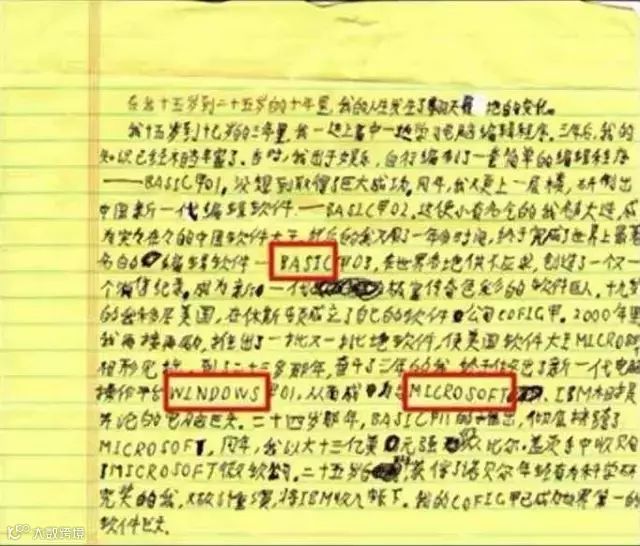 在我十五岁到二十五岁的十年里,我的人生发生了翻天 地的变化。
我十五岁到十八岁的三年里,我一边上高中一边学习电脑编辑程序。三年后,我的
知识已经相当丰富了。当时,我出于娱乐,自行编制了一套简单的编辑程序
——BASIC甲01,没想到取得了巨大成功。同年,我又更上一层楼,研制出
中国新一代编辑软件——BASIC甲02。这使小有名气的我名声大造,成
为实实在在的中国软件大王。此后的我又用了一年的时间,终于完成了世界上最著
名的 编辑软件—BASIC甲03,在世界各地供不应求,创造了一个又一
个销售纪录,成为新一代 极富传奇色彩的软件巨人。十九岁
的我移居美国,在休斯顿成立了自己的软件公司COFIG甲。2000年里
我再接再励,推出了一批又一批地软件,使美国软件大王MICROSOFT
相形见拙。到了二十三岁那年,奋斗了三年的我,终于作出了新一代电脑
操作平台WINDOWS甲01,从而成 为与MICROSOFT、IBM相提
并论的电脑巨头。二十四岁那年,BASIC甲11的推出,彻底摧毁了
MICROSOFT,同年,我以大十三亿美元强 从比尔·盖茨手中收购
了MICROSOFT微软公司。二十五岁的 获得了诺贝尔年轻有为科学研
究奖的我,又 将IBM收入帐下。我的COFIG甲已成为世界第一的
软件巨头。
大数跨境